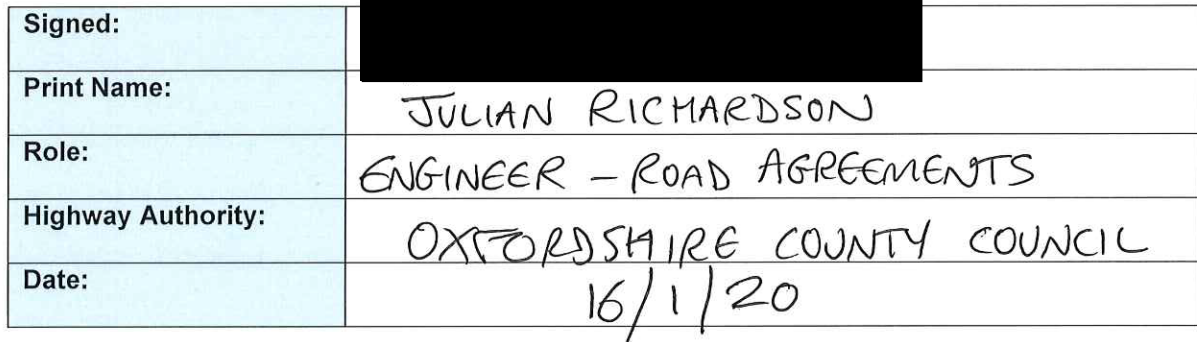 Signed:
Print Name: JULIAN RICHARDSON
Role: ENGINEER - ROAD AGREEMENTS
Highway Authority: OXFORDSHIRE COUNTY COUNCIL
Date: 16/1/20